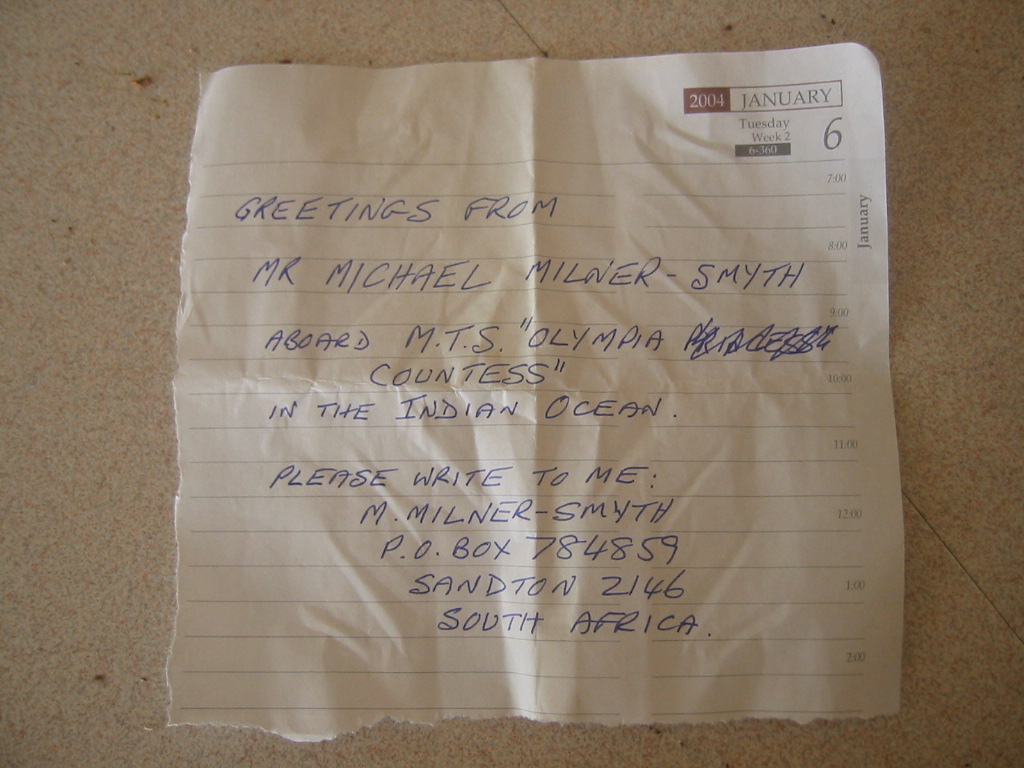 2004 JANUARY
Tuesday
Week 2
6-360
6
7:00
January
GREETINGS FROM
8:00
MR MICHAEL MILNER-SMYTH
9:00
ABOARD M.T.S. "OLYMPIA
COUNTESS"
10:00
IN THE INDIAN OCEAN.
11:00
PLEASE WRITE TO ME:
M. MILNER-SMYTH
12:00
P.O. BOX 784859
SANDTON 2146
1:00
SOUTH AFRICA.
2:00